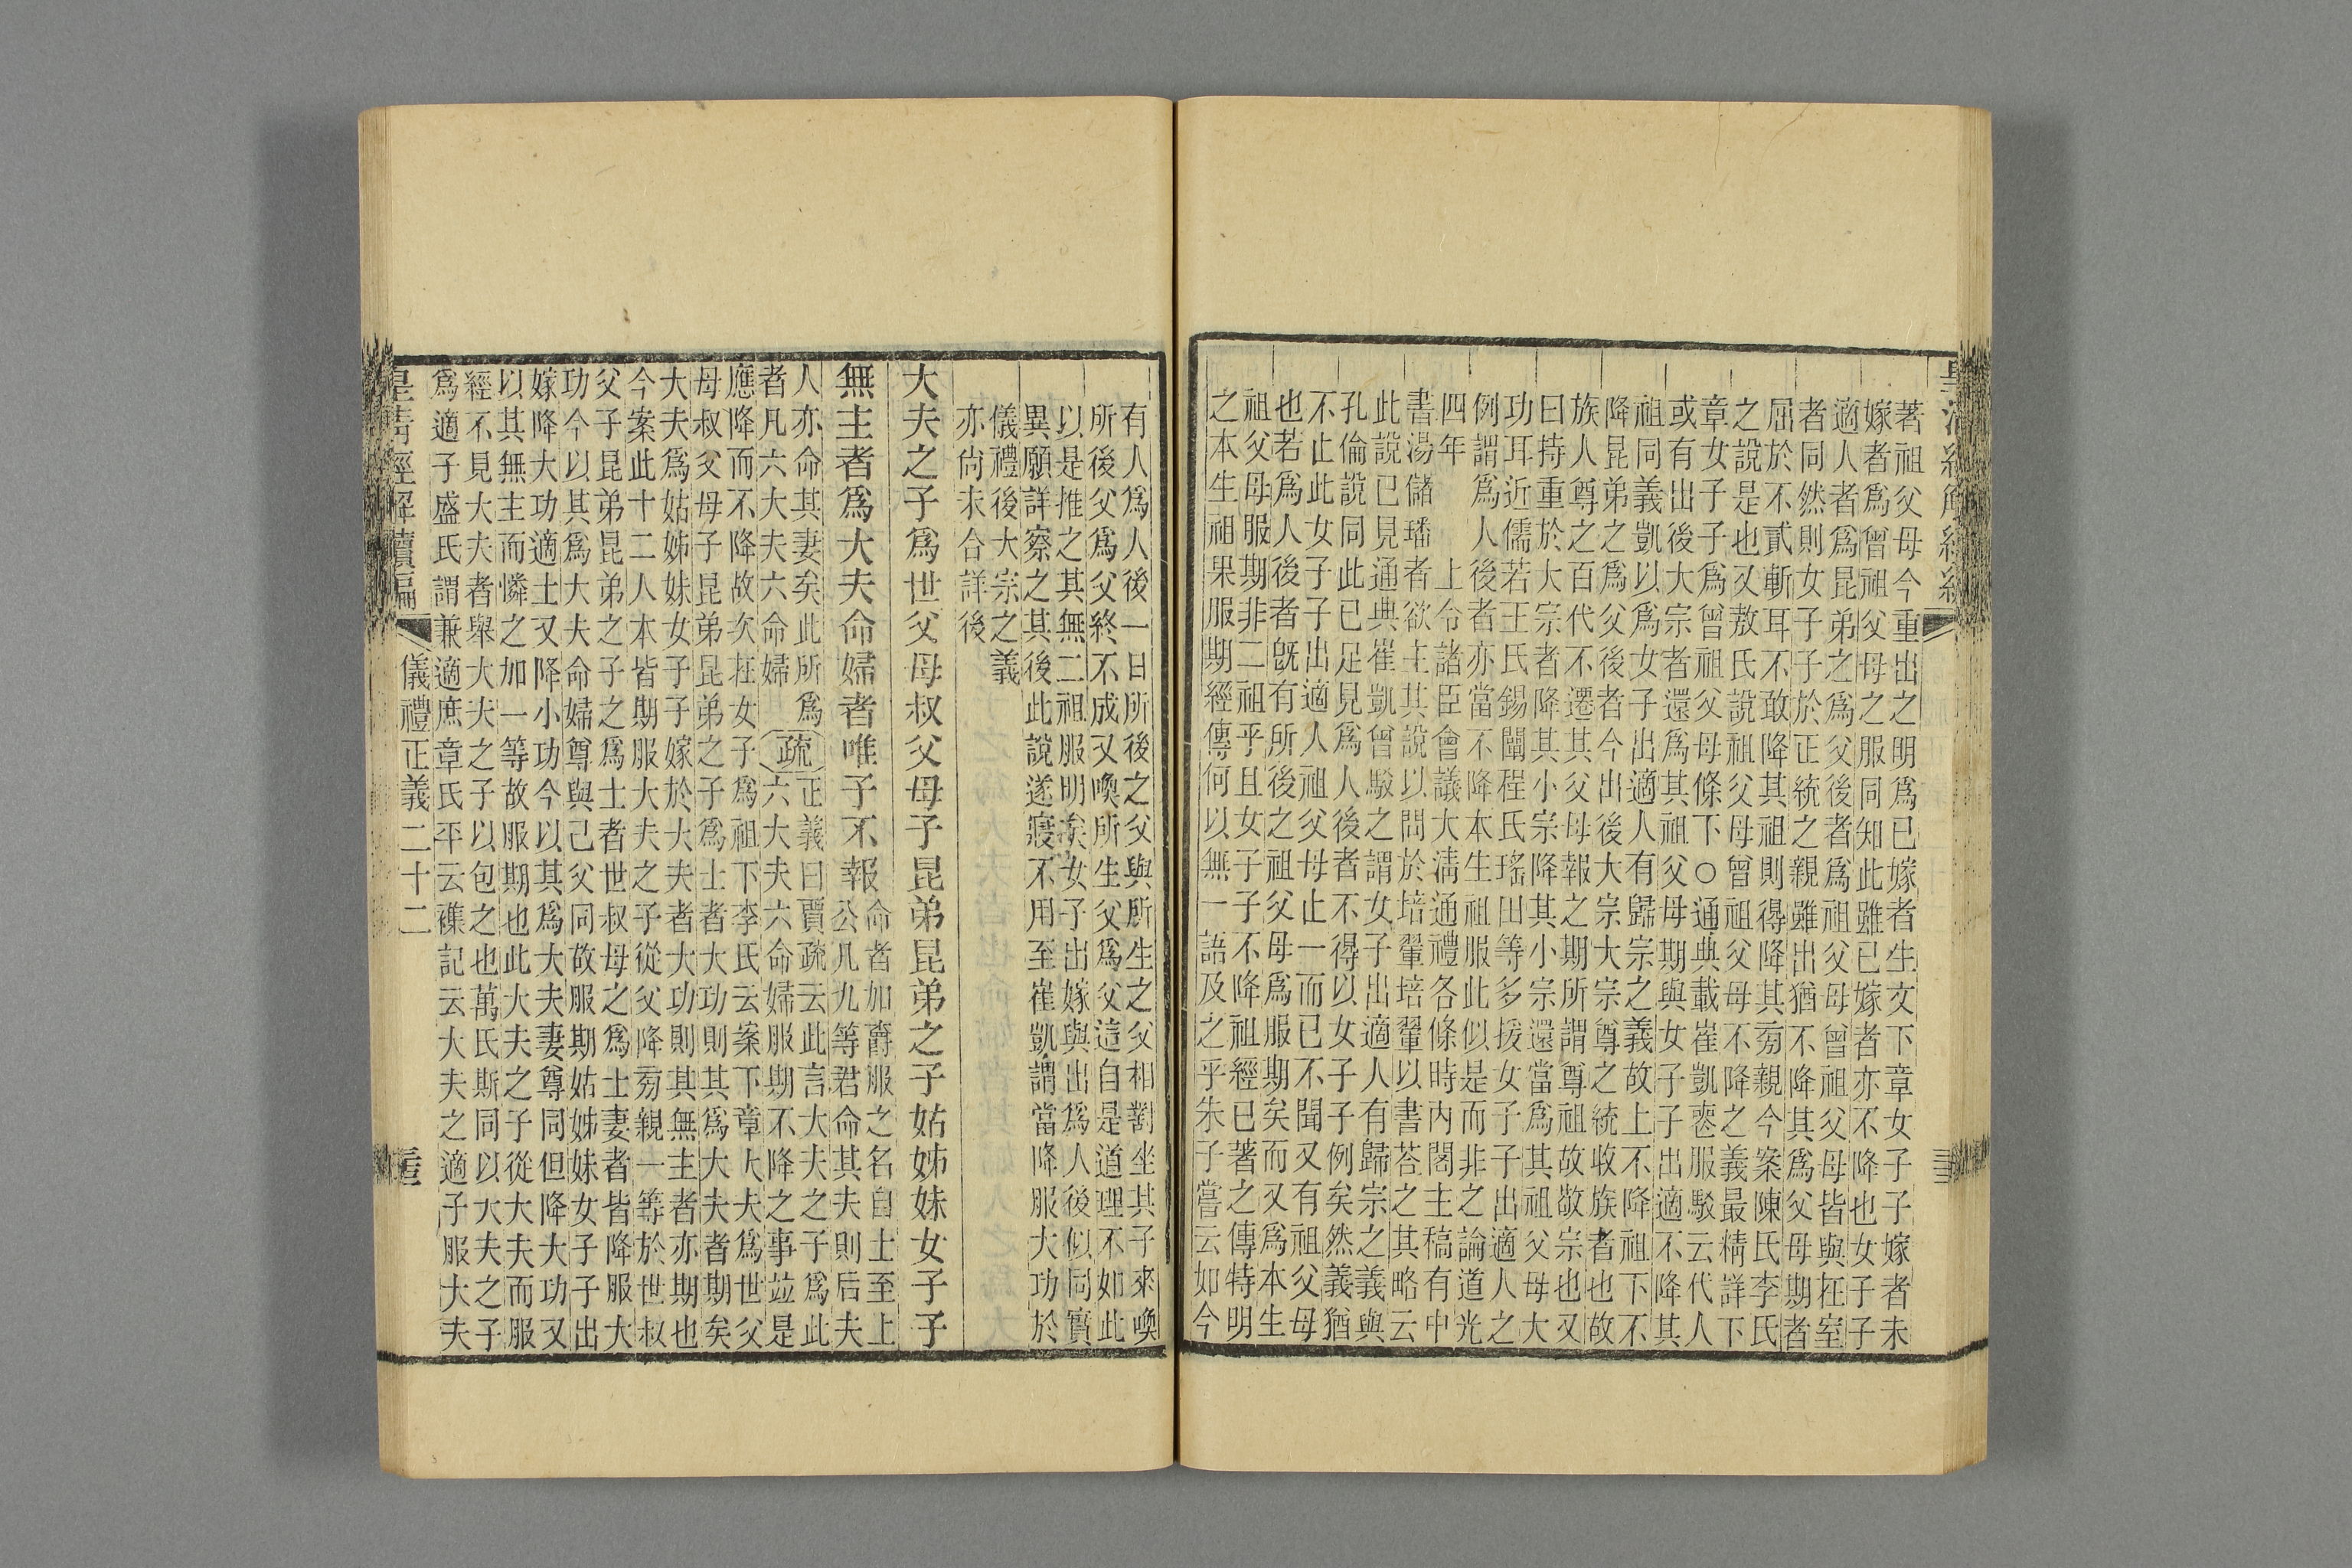 著祖父母今重出之明爲已嫁者生文下章女子子嫁者未
嫁者爲曾祖父母之服同知此雖已嫁者亦不降也女子子
適人者爲昆弟之爲父後者爲祖父母曾祖父母皆與在室
者同然則女子子於正統之親雖出猶不降其爲父母期者
屈於不貳斬耳不敢降其祖則得降其旁親今案陳氏李氏
之說是也又敖氏說祖父母曾祖父母不降之義最精詳下
章女子子爲曾祖父母條下○通典載崔凱喪服駁云代人
或有出後大宗者還爲其祖父母期與女子子出適不降其
祖同義凱以爲女子出適人有歸宗之義故上不降祖下不
降昆弟之爲父後者今出後大宗大宗尊之統收族者也故
族人尊之百代不遷其父母報之期所謂尊祖故敬宗也又
曰持重於大宗者降其小宗降其小宗還當爲其祖父母大
功耳近儒若王氏錫闡程氏瑤田等多援女子子出適人之
例謂爲人後者亦當不降本生祖服此似是而非之論道光
四年　上令諸臣會議大淸通禮各條時內閣主稿有中
書湯儲璠者欲主其說以問於培翬培翬以書荅之其略云
此說已見通典崔凱曾駁之謂女子出適人有歸宗之義與
孔倫說同此已足見爲人後者不得以女子子例矣然義猶
不止此女子子出適人祖父母止一而已不聞又有祖父母
也若爲人後者旣有所後之祖父母爲服期矣而又爲本生
祖父母服期非二祖乎且女子子不降祖經已著之傳特明
之本生祖果服期經傳何以無一語及之乎朱子嘗云如今
有人爲人後一日所後之父與所生之父相對坐其子來喚
所後父爲父終不成又喚所生父爲父這自是道理不如此
以是推之其無二祖服明矣女子出嫁與出爲人後似同實
異願詳察之其後此說遂寢不用至崔凱謂當降服大功於
儀禮後大宗之義
亦尙未合詳後
大夫之子爲世父母叔父母子昆弟昆弟之子姑姊妹女子子
無主者爲大夫命婦者唯子不報
命者如爵服之名自士至上
公凡九等君命其夫則后夫
人亦命其妻矣此所爲
者凡六大夫六命婦
疏
正義曰賈疏云此言大夫之子爲此
六大夫六命婦服期不降之事並是
應降而不降故次在女子爲祖下李氏云案下章大夫爲世父
母叔父母子昆弟昆弟之子爲士者大功則其爲大夫者期矣
大夫爲姑姊妹女子子嫁於大夫者大功則其無主者亦期也
今案此十二人本皆期服大夫之子從父降旁親一等於世叔
父子昆弟昆弟之子之爲士者世叔母之爲士妻者皆降服大
功今以其爲大夫命婦尊與己父同故服期姑姊妹女子子出
嫁降大功適士又降小功今以其爲大夫妻尊同但降大功又
以其無主而憐之加一等故服期也此大夫之子從大夫而服
經不見大夫者舉大夫之子以包之也萬氏斯同以大夫之子
爲適子盛氏謂兼適庶章氏平云襍記云大夫之適子服大夫
皇清經解續編　儀禮正義二十二